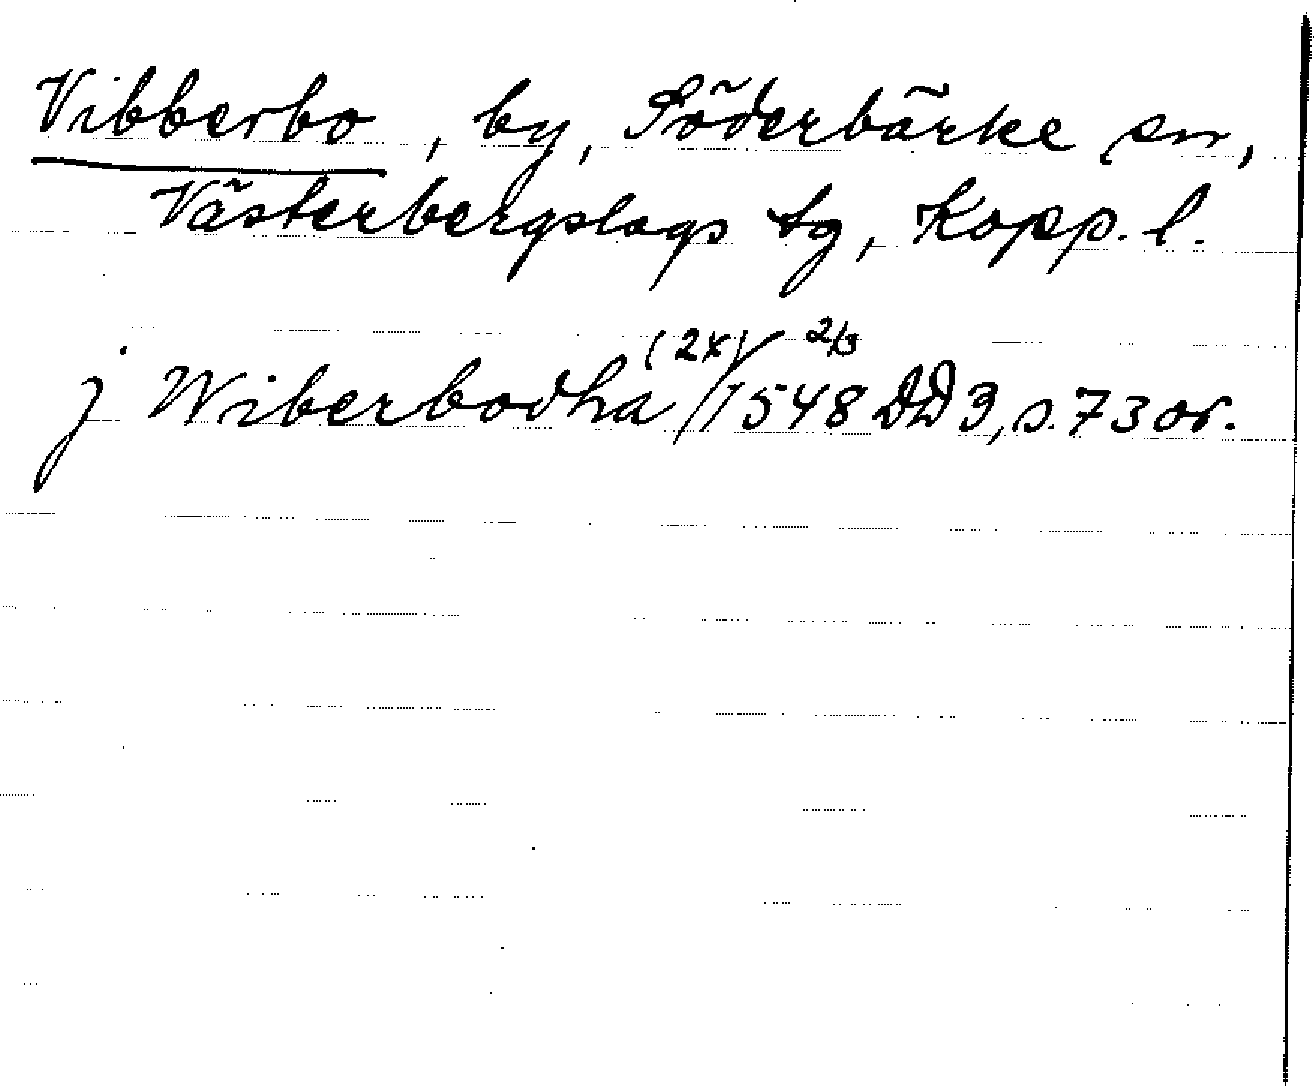 Vibberbo, by, Söderbärke sn,
Västerbergslags tg, Kopp. l.
j Wiberbodha (2x) 2/3 1548 DD 3, s. 73 or.